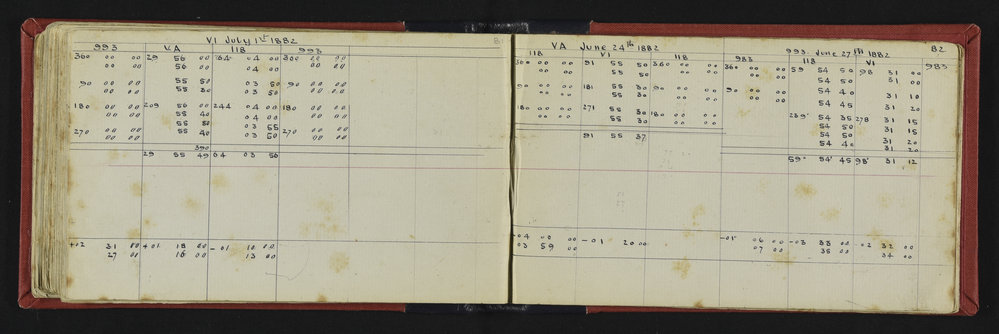 VI July 1st 1882 81
993 VA 118 993
360 00 00 29 56 00 64 04 00 360 00 00
00 00 56 00 04 00 00 00
90 00 00 55 50 03 50 90 00 00
00 00 55 30 03 50 00 00
180 00 00 209 56 00 244 04 00 180 00 00
00 00 55 40 04 00 00 00
00 00 55 50 03 55 00 00
270 00 00 55 40 03 50 270 00 00
390
29 55 49 64 03 56
+02 31 00 +01 18 00 -01 10 00
27 00 16 00 13 00
VA June 24th 1882
118 VI 118 983
360 00 00 91 55 50 360 00 00 360 00 00
00 00 55 30 00 00 00 00
90 00 00 181 55 30 90 00 00 90 00 00
00 00 55 30 00 00 00 00
180 00 00 271 55 30 180 00 00
00 00 55 30 00 00
91 55 37
-04 00 00 -01 20 00
03 59 00
993 June 27th 1882 82
118 VI 983
59 54 50 98 31 00
54 50 31 00
54 40 31 10
54 45 31 20
239 54 35 278 31 15
54 50 31 15
54 50 31 20
54 40 31 20
59° 54' 45 98° 31 12
-05 06 00 -03 33 00 -02 32 00
07 00 35 00 34 00